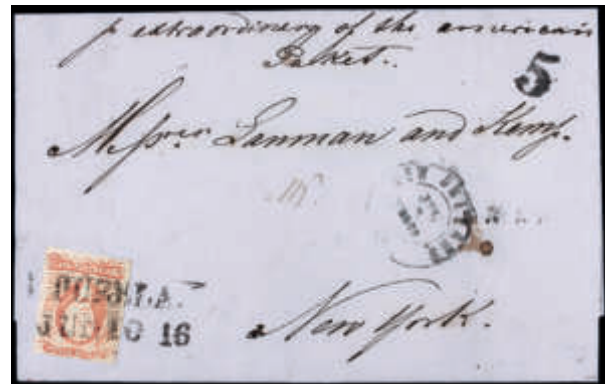 p extraordinery of the american
Packet.
5
Messrs Lanman and Kemp.
PUEBLA.
JULIO 16
New York.